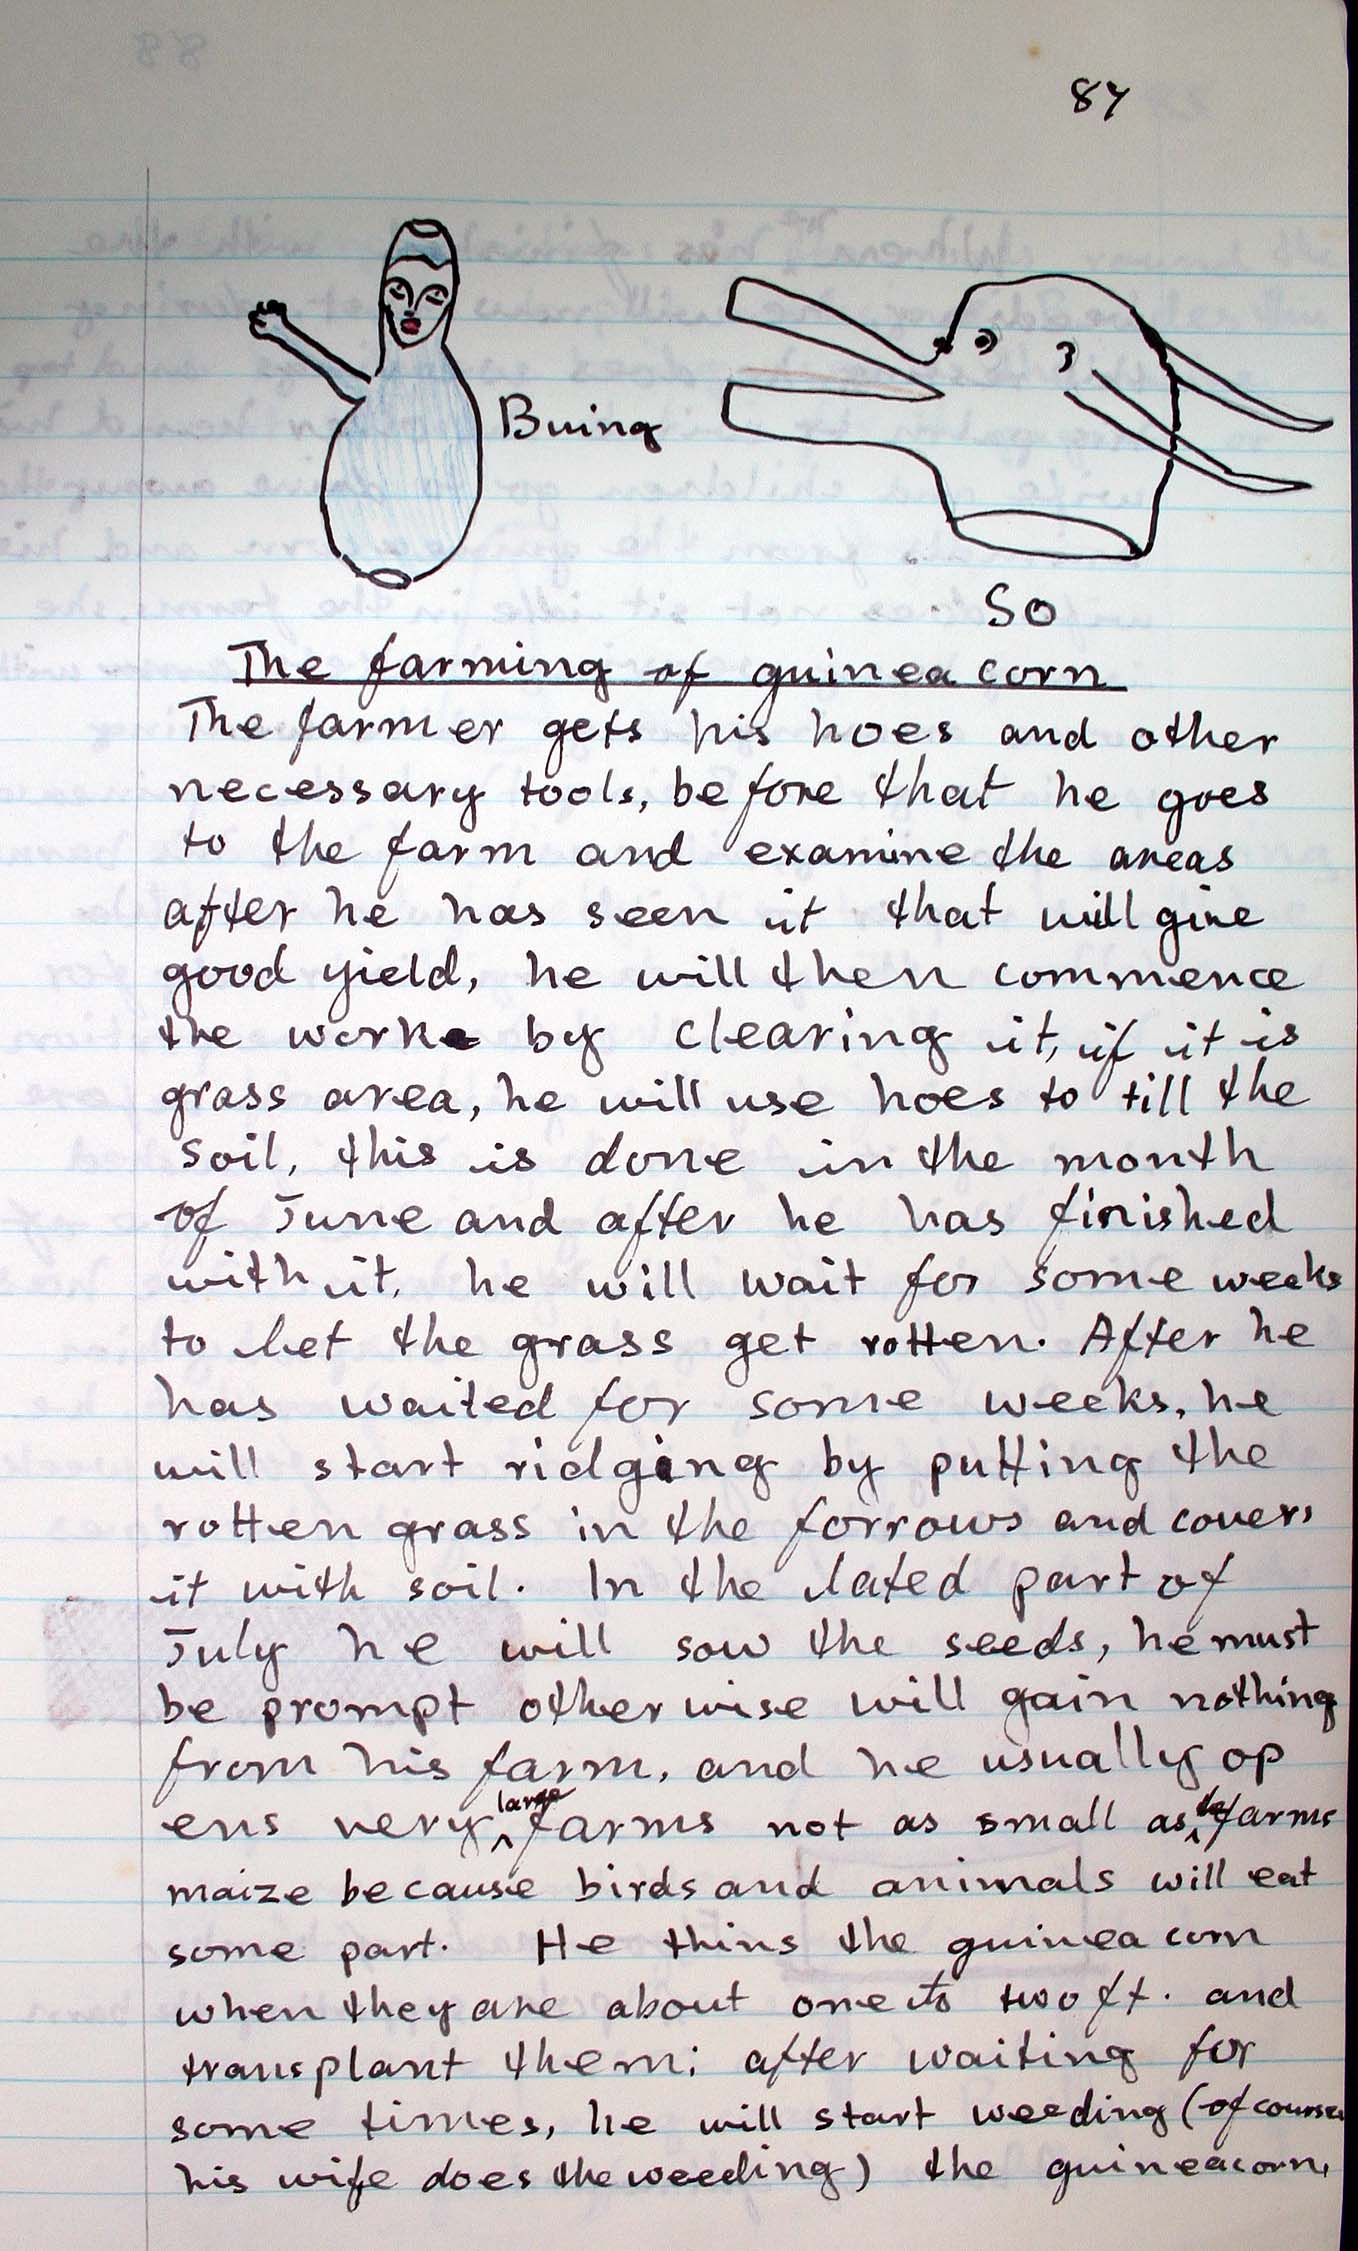 87
Buing
So
The farming of guinea corn
The farmer gets his hoes and other
necessary tools, before that he goes
to the farm and examine the areas
after he has seen it that will give
good yield, he will then commence
the work by clearing it, if it is
grass area, he will use hoes to till the
soil, this is done in the month
of June and after he has finished
with it, he will wait for some weeks
to let the grass get rotten. After he
has waited for some weeks, he
will start ridging by putting the
rotten grass in the forrows and covers
it with soil. In the lated part of
July he will sow the seeds, he must
be prompt otherwise will gain nothing
from his farm, and he usually op
ens very large farms not as small as farms
maize because birds and animals will eat
some part. He thins the guinea corn
when they are about one to two ft. and
transplant them; after waiting for
some times, he will start weeding (of course
his wife does the weeding) the guineacorn,